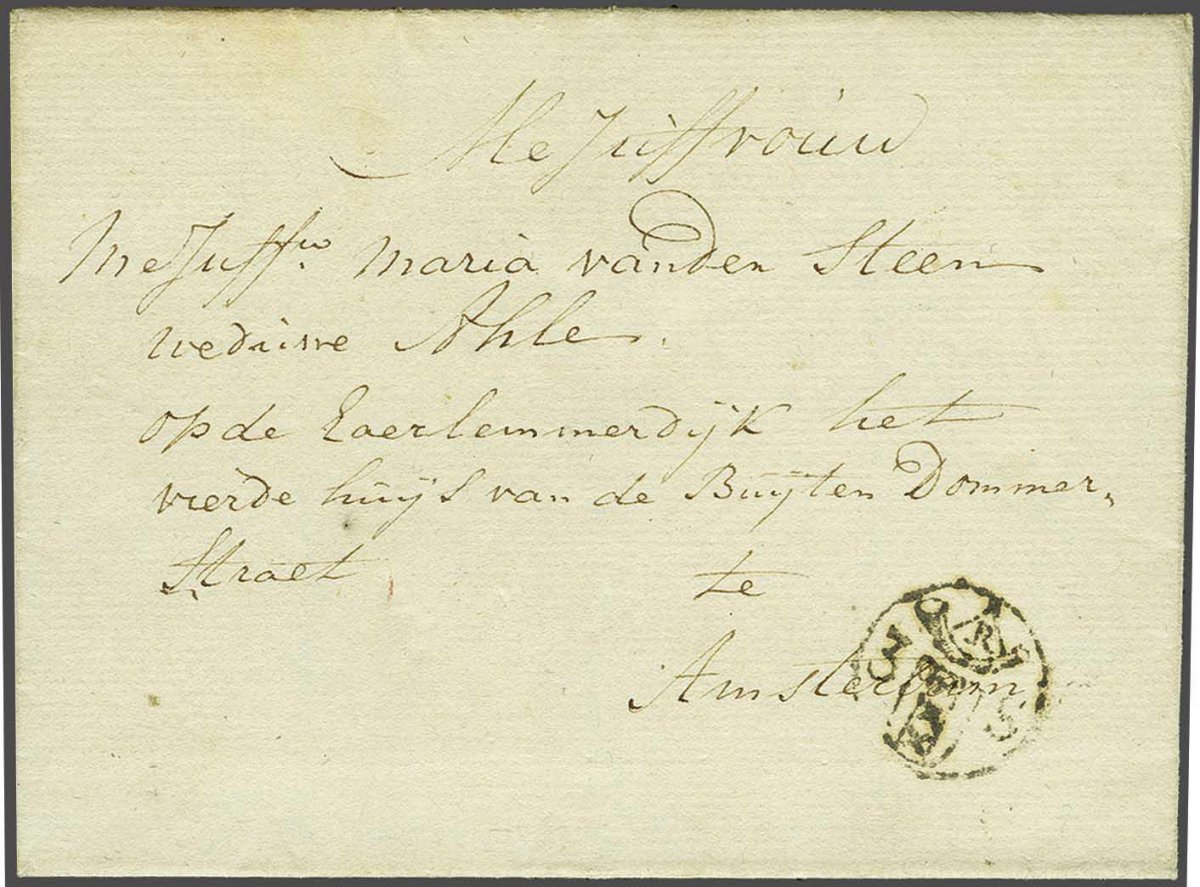 MeJuffrouw
MeJuffw. Maria vanden Steen
weduwe Ahle.
op de Haerlemmerdijk het
vierde huijs van de Buijten Dommer„
„Straet te
Amsterdam
3 S
R